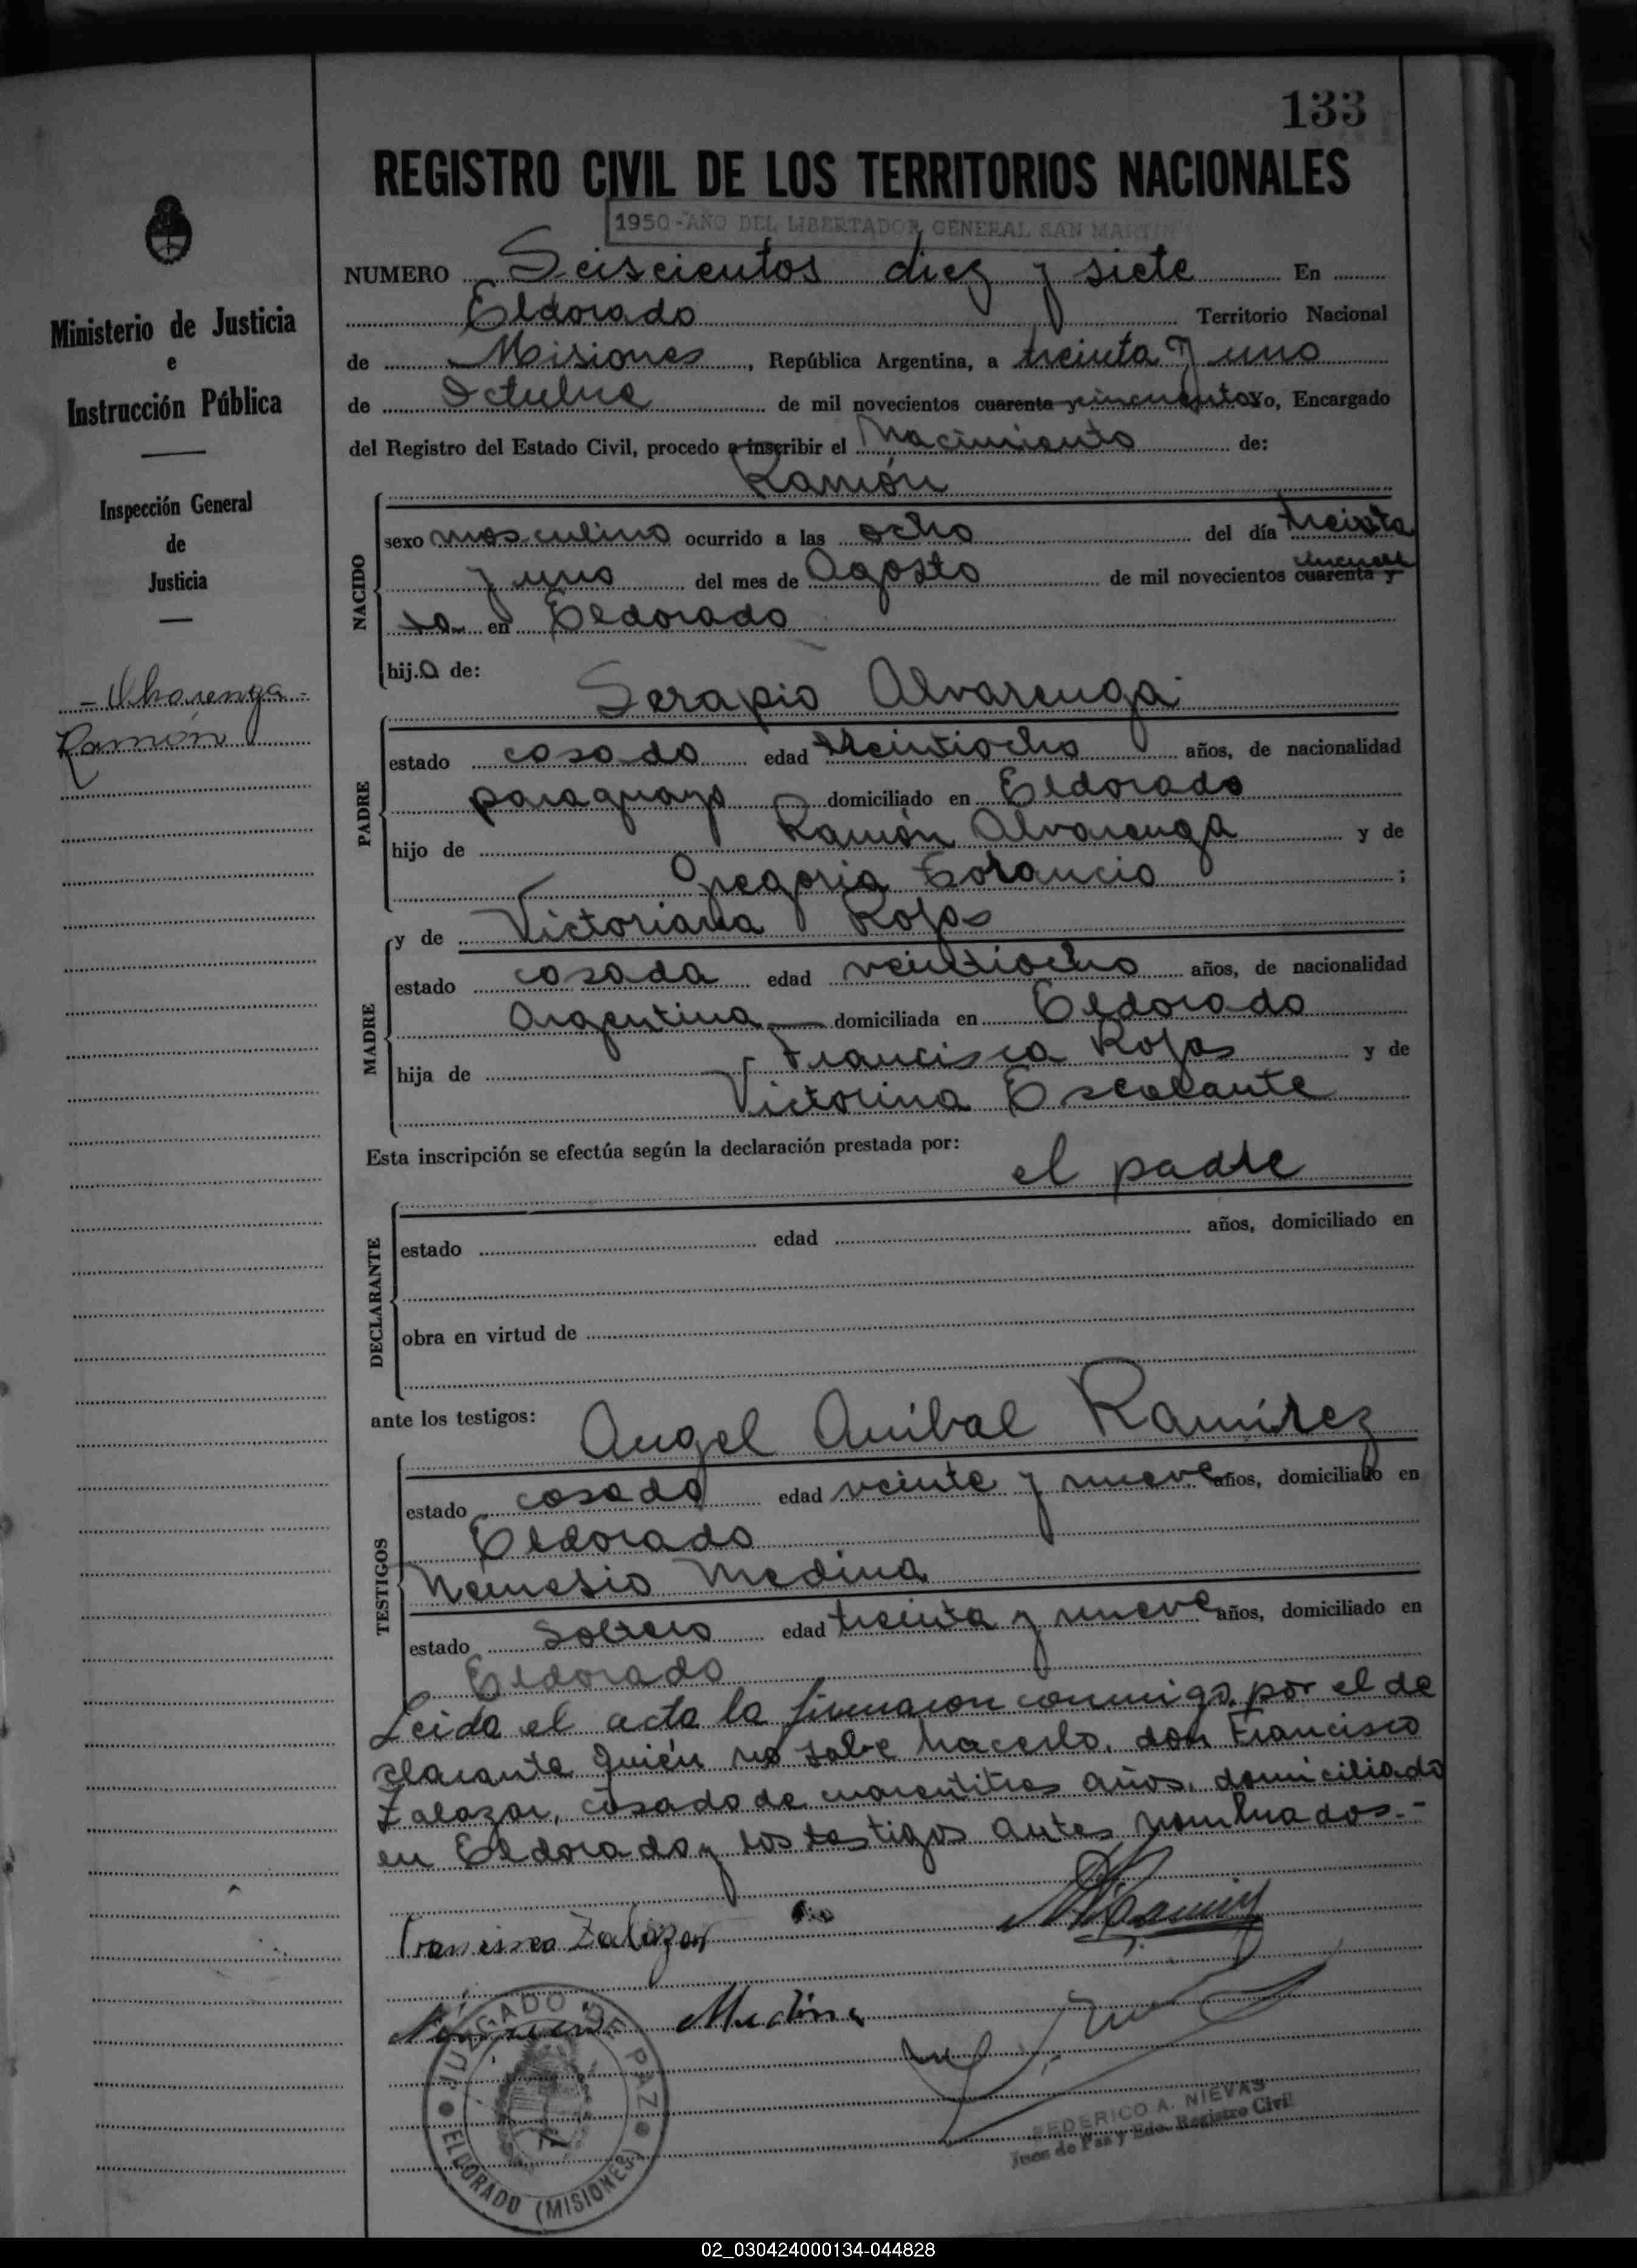 133
REGISTRO CIVIL DE LOS TERRITORIOS NACIONALES
1950 - AÑO DEL LIBERTADOR GENERAL SAN MARTIN
NUMERO Seiscientos diez y siete En
Eldorado Territorio Nacional
de Misiones, República Argentina, a treinta y uno
de Octubre de mil novecientos cuarenta y cincuenta Yo, Encargado
del Registro del Estado Civil, procedo a inscribir el Nacimiento de:
Ramón
NACIDO
sexo masculino ocurrido a las ocho del día treinta
y uno del mes de Agosto de mil novecientos cuarenta y cincuen
ta en Eldorado
hij.o de:
Serapio Alvarenga
PADRE
estado casado edad treintiocho años, de nacionalidad
paraguayo domiciliado en Eldorado
hijo de Ramón Alvarenga y de
Gregoria Colancio ;
y de Victoriana Rojas
MADRE
estado casada edad veintiocho años, de nacionalidad
Argentina domiciliada en Eldorado
hija de Francisca Rojas y de
Victorina Escalante
Esta inscripción se efectúa según la declaración prestada por:
el padre
DECLARANTE
estado edad años, domiciliado en
obra en virtud de
ante los testigos:
Angel Anibal Ramírez
TESTIGOS
estado casado edad veinte y nueve años, domiciliado en
Eldorado
Nemesio Medina
estado Soltero edad treinta y nueve años, domiciliado en
Eldorado
Leida el acta la firmaron conmigo, por el de
clarante quién no sabe hacerlo, don Francisco
Zalazar, casado de cuarentitres años, domiciliado
en Eldorado y los testigos antes nombrados.-
Francisco Zalazar
Medina
JUZGADO DE PAZ
ELDORADO (MISIONES)
FEDERICO A. NIEVAS
Juez de Paz y Edo. Registro Civil
Ministerio de Justicia
e
Instrucción Pública
Inspección General
de
Justicia
- Alvarenga -
Ramón
02_030424000134-044828